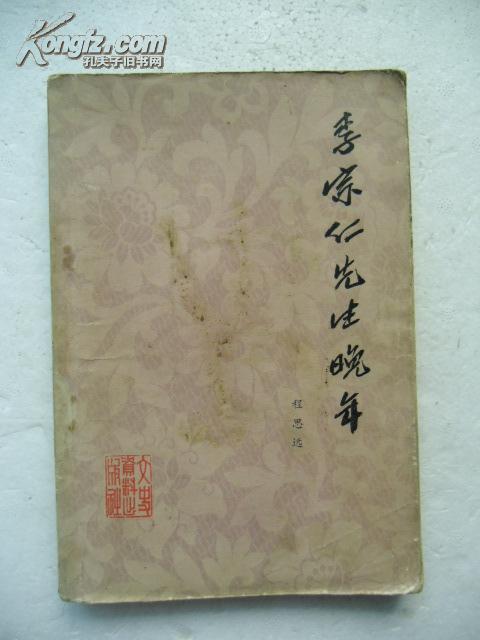 Kongfz.com
孔夫子旧书网
李宗仁先生晚年
程思远
文史
资料出
版社